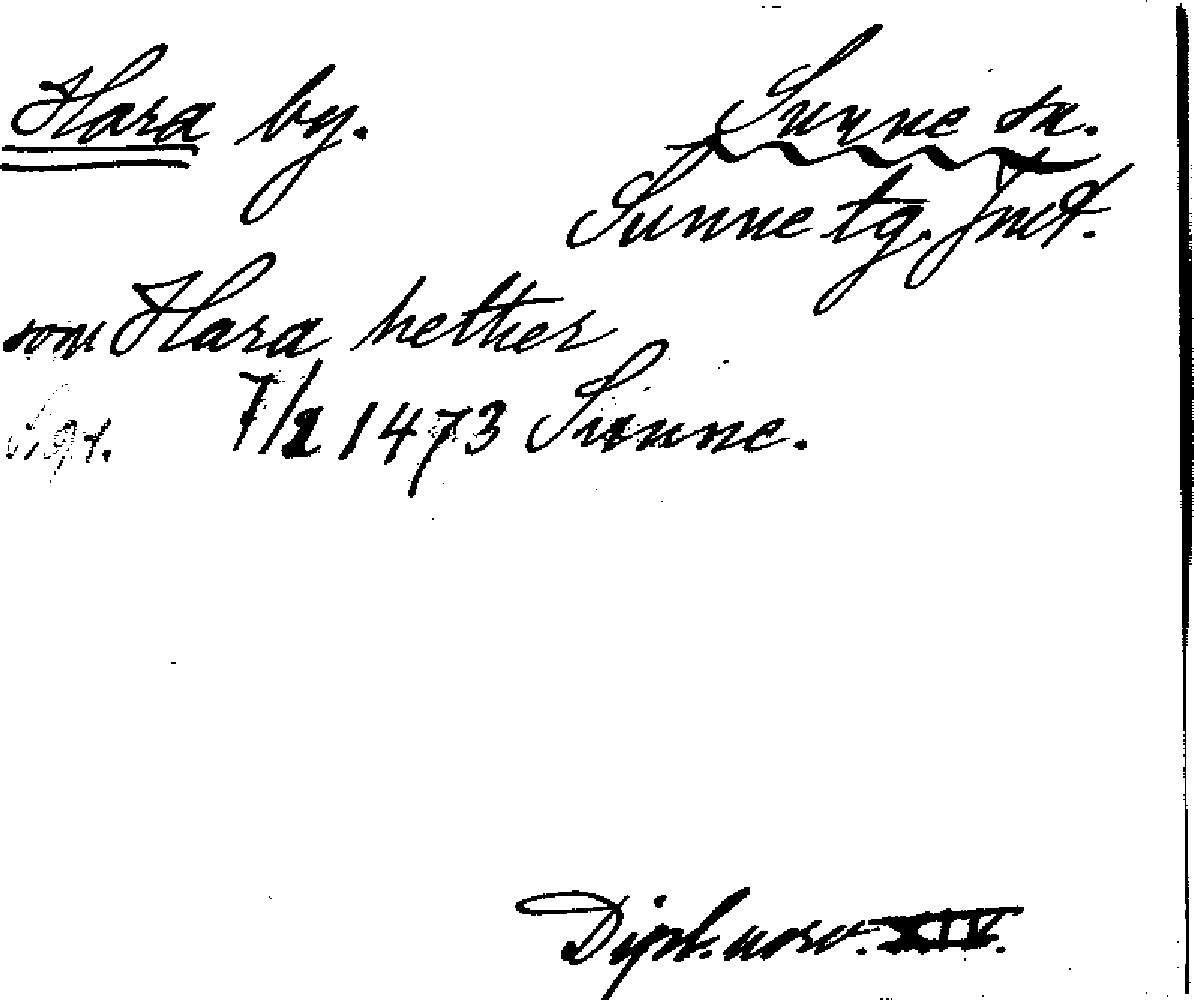 Hara by. Sunne sn.
Sunne tg. Jmt.
som Hara hetther
7/2 1473 Sunne.
Dipl. norv. XIV.